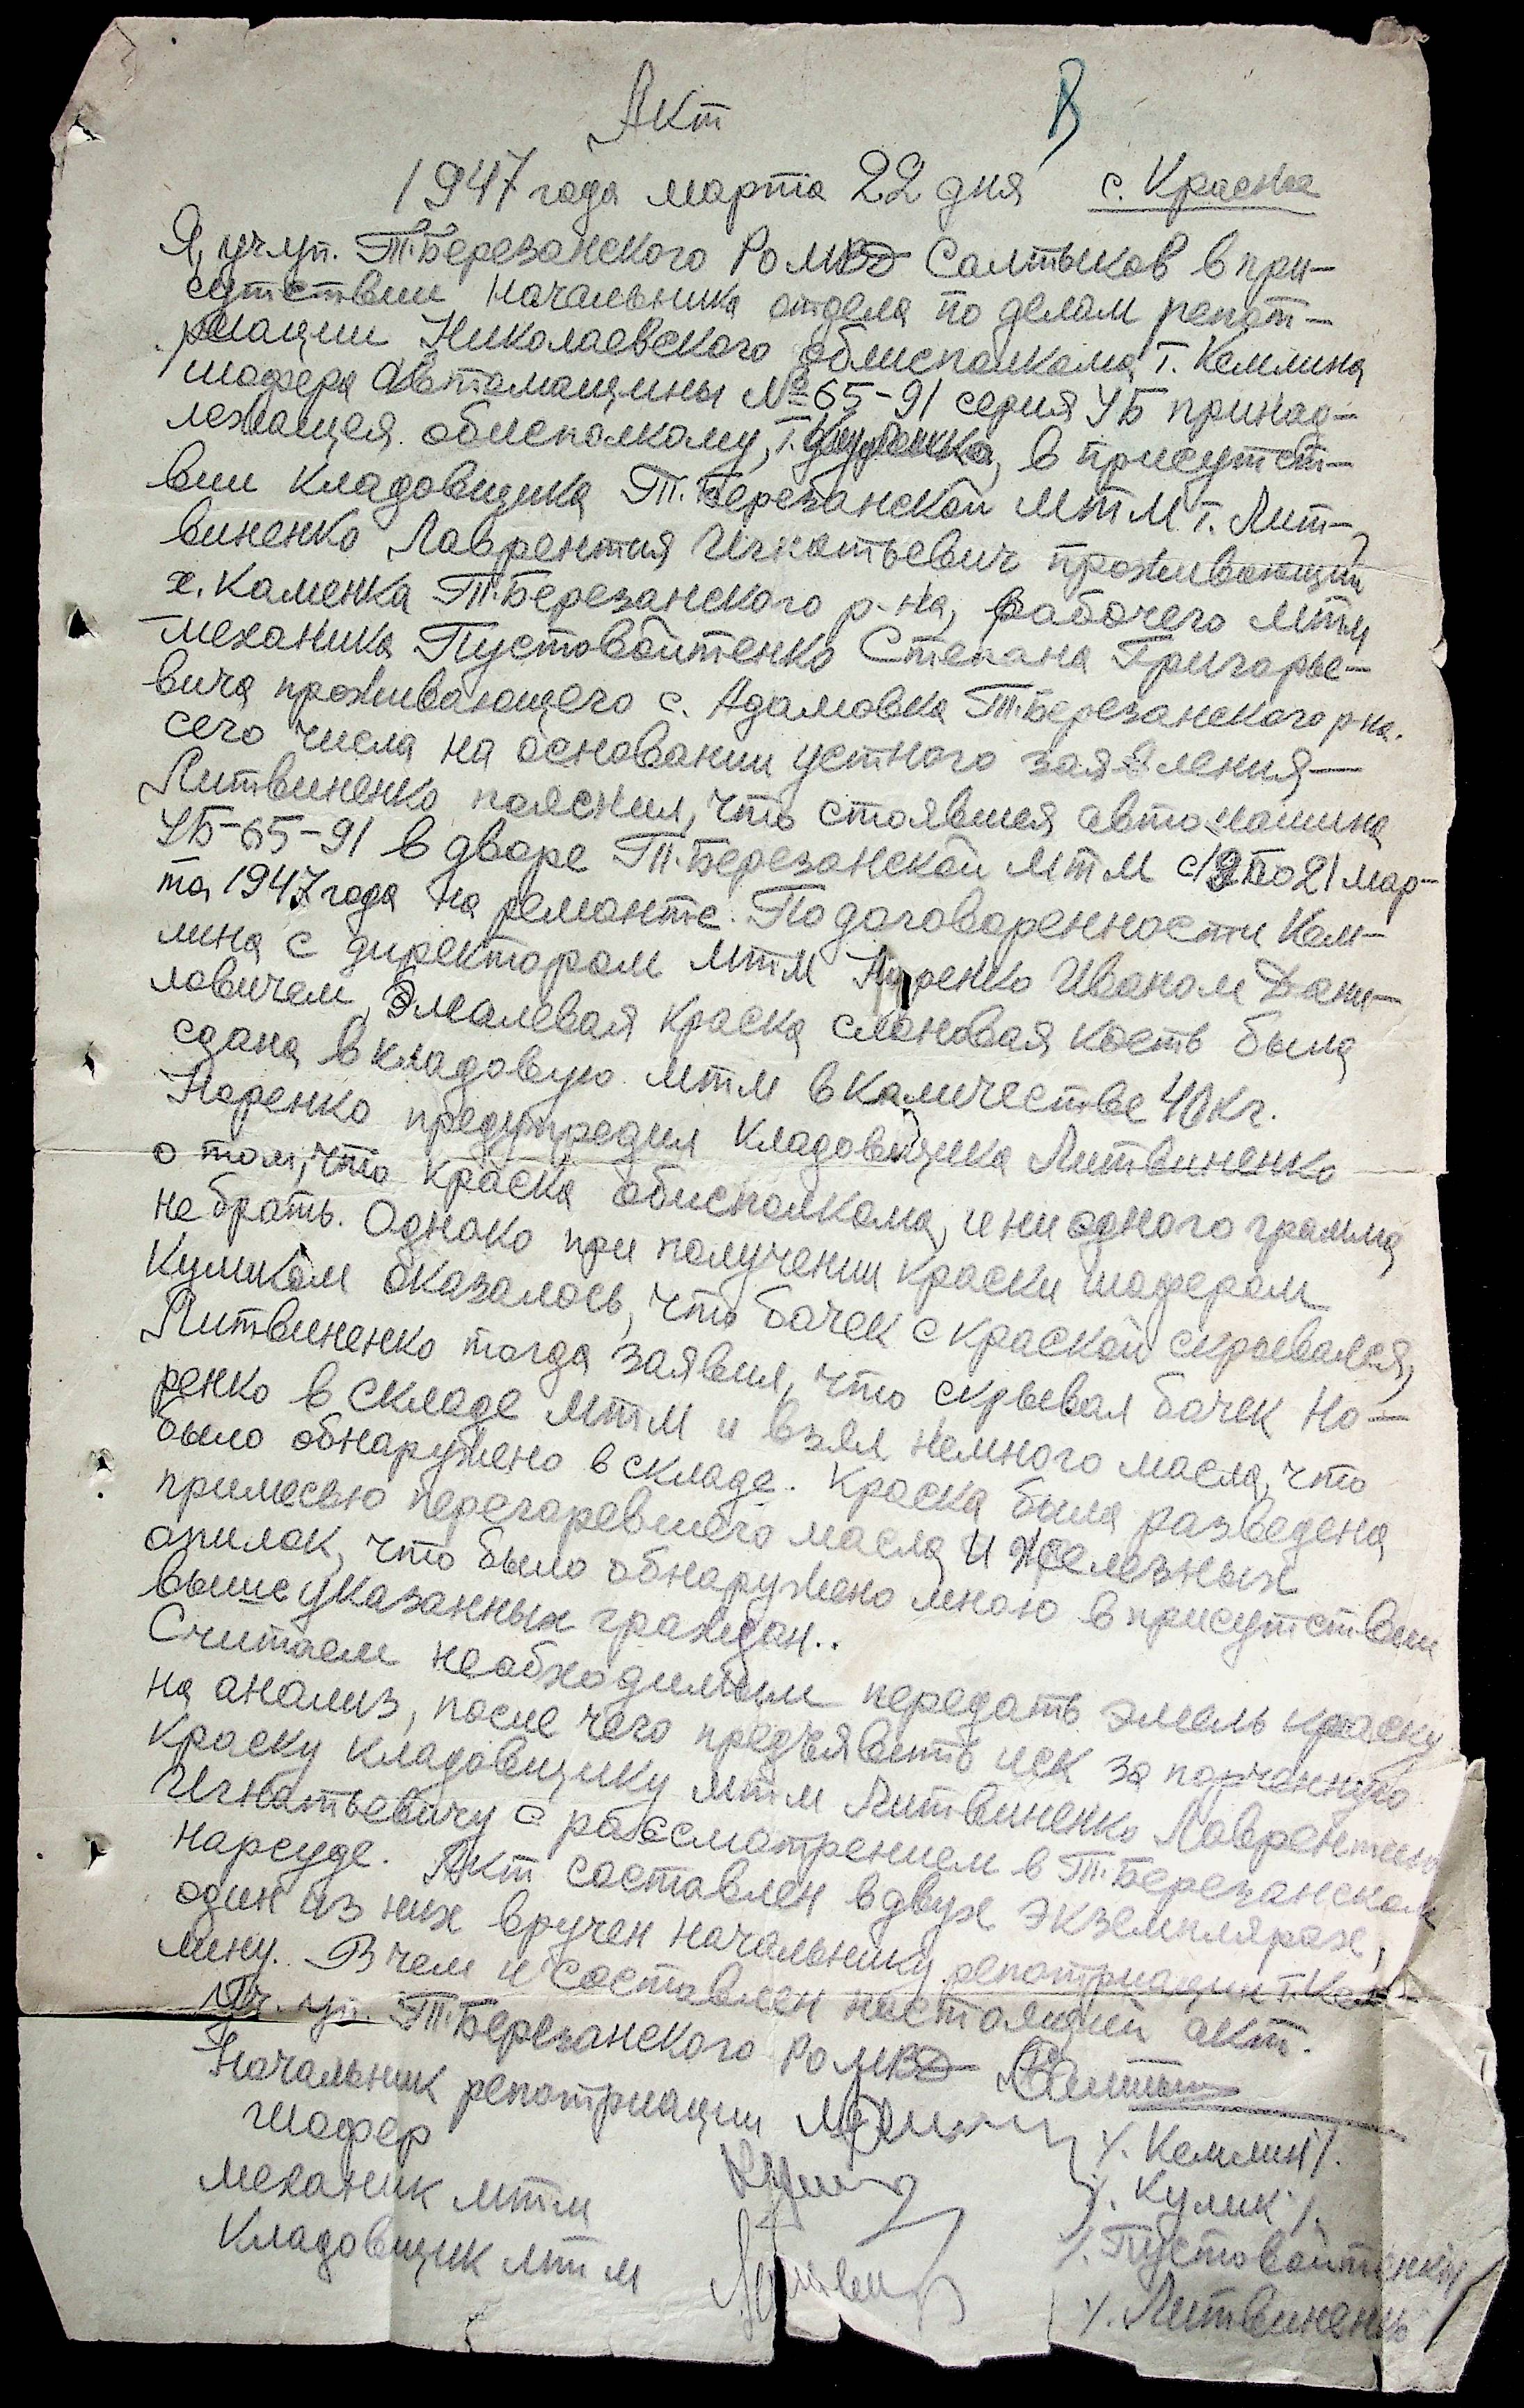 Акт
В
1947 года марта 22 дня с. Красна
Я, уч.уп. Т.Березанского РоМВД Салтыков в при-
сутствии начальника отдела по делам репат-
риации Николаевского облисполкома т. Кемлина
шофера автомашины № 65-91 серия УБ принад-
лежащея облисполкому, т. в присутст-
вии кладовщика Т.Березанской МТМ т. Лит-
виненко Лаврентия Игнатьевич проживающий
х. Каменка Т.Березанского р-на, рабочего МТМ
механика Пустовойтенко Степана Григорье-
вича проживающего с. Адамовка Т.Березанского р-на.
сего числа на основании устного заявления
Литвиненко пояснил, что стоявшея автомашина
УБ-65-91 в дворе Т.Березанской МТМ с 19 по 21 мар-
та 1947 года на ремонте. По договоренности Кем-
лина с директором МТМ Норенко Иваном Дани-
ловичем, Эмалевая краска слоновая кость была
сдана в кладовую МТМ в количестве 40 кг.
Норенко предупредил кладовщика Литвиненко
о том, что краска облисполкома, и ни одного грамма
не брать. Однако при получении краски шофером
Куликом оказалось, что бачек с краской скрывался,
Литвиненко тогда заявил, что скрывал бачек Но-
ренко в складе МТМ и взял немного масла, что
было обнаружено в складе. Краска была разведена
примесью перегаревшего масла и железных
опилок, что было обнаружено мною в присутствии
вышеуказанных граждан..
Считаем необходимым передать эмель краску
на анализ, после чего предъявить иск за порченную
краску кладовщику МТМ Литвиненко Лаврентию
Игнатьевичу с рассмотрением в Т.Березанском
нарсуде. Акт составлен в двух экземплярах,
один из них вручен начальнику репатриации т. Кем-
лину. В чем и составлен настоящий акт.
Уч. уп. Т.Березанского РоМВД Салтык
Начальник репатриации /. Кемлин /.
Шофер /. Кулик /.
Механик МТМ /. Пустовойтенко /
Кладовщик МТМ /. Литвиненко